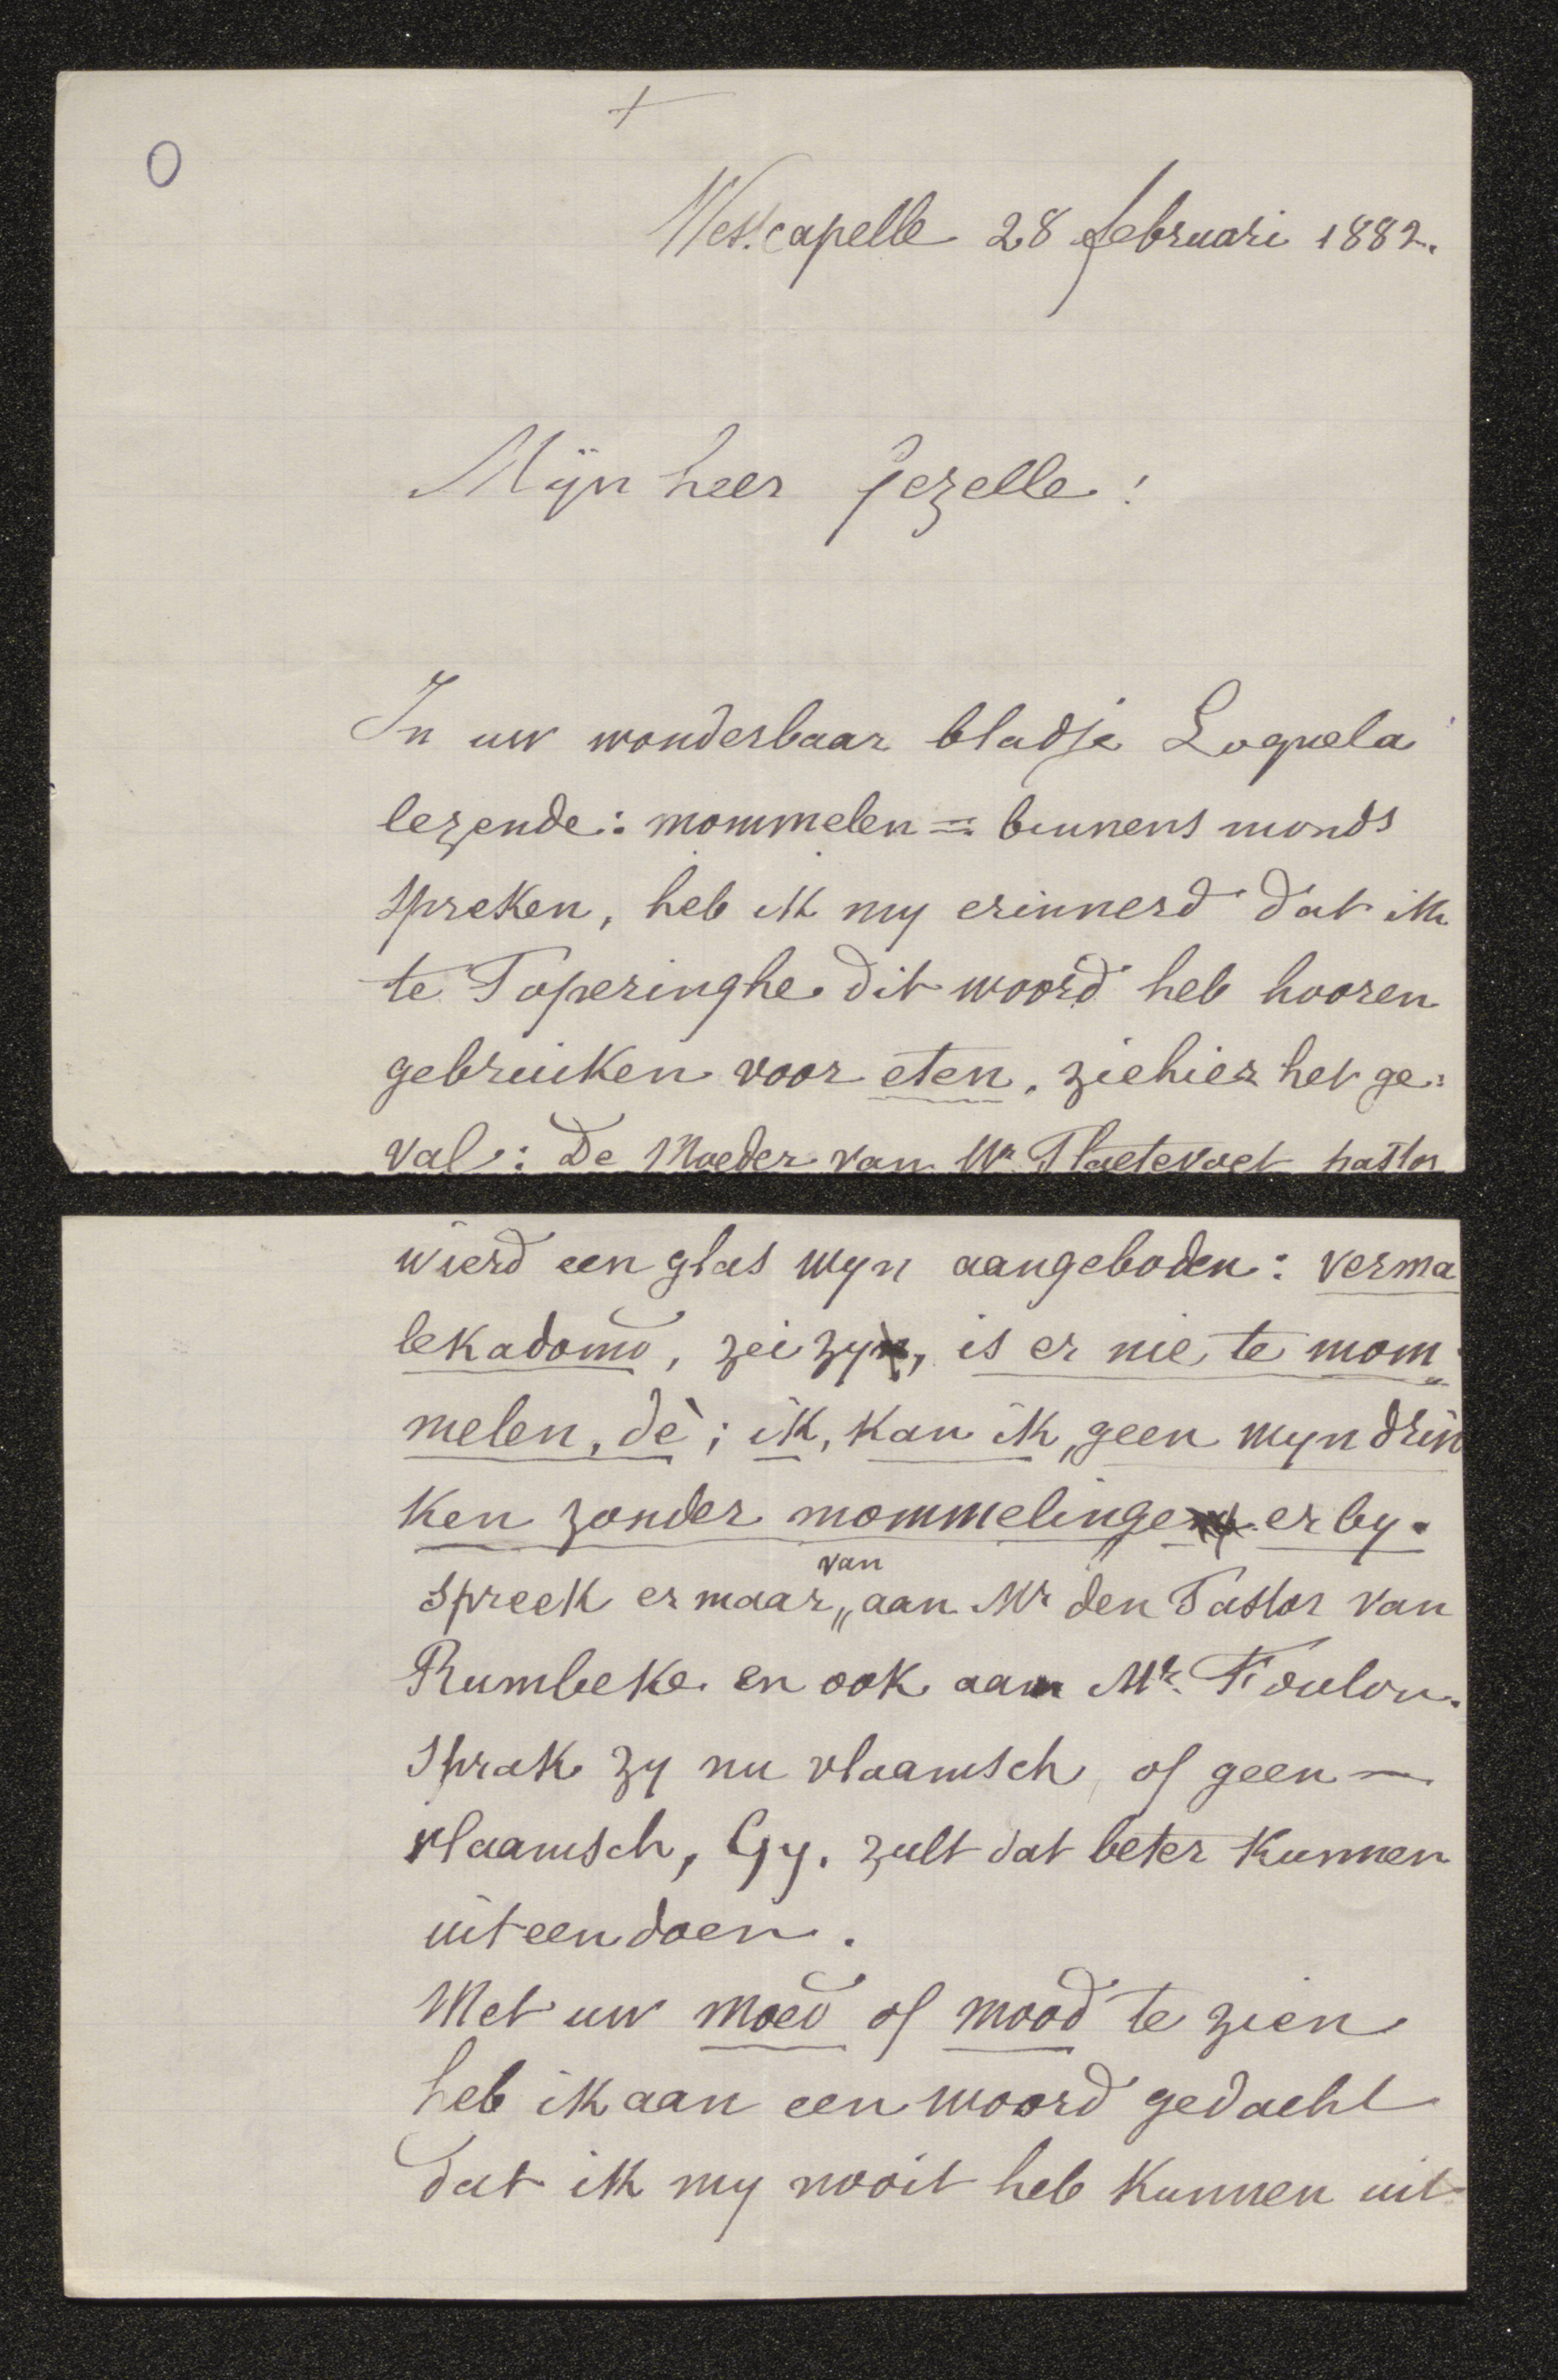 +
O
Westcapelle 28 februari 1882.
Mijn heer Gezelle!
In uw wonderbaar bladje Loquela
lezende: mommelen = binnens monds
spreken, heb ik my erinnerd dat ik
te Poperinghe dit woord heb hooren
gebruiken voor eten. ziehier het ge:
val: De Moeder van Mr Plaetevoet pastor
wierd een glas wyn aangeboden: verma
lekadomd, zei zy, is er nie te mom„
melen, dè; ik, kan ik geen wyn drin
ken zonder mommelinge erby.
van
Spreek er maar „ aan Mr den Pastor van
Rumbeke en ook aan Mr. Foulon.
Sprak zy nu vlaamsch of geen —
vlaamsch, Gy. zult dat beter kunnen
uiteendoen.
Met uw moed of mood te zien
heb ik aan een woord gedacht
dat ik my nooit heb kunnen uit